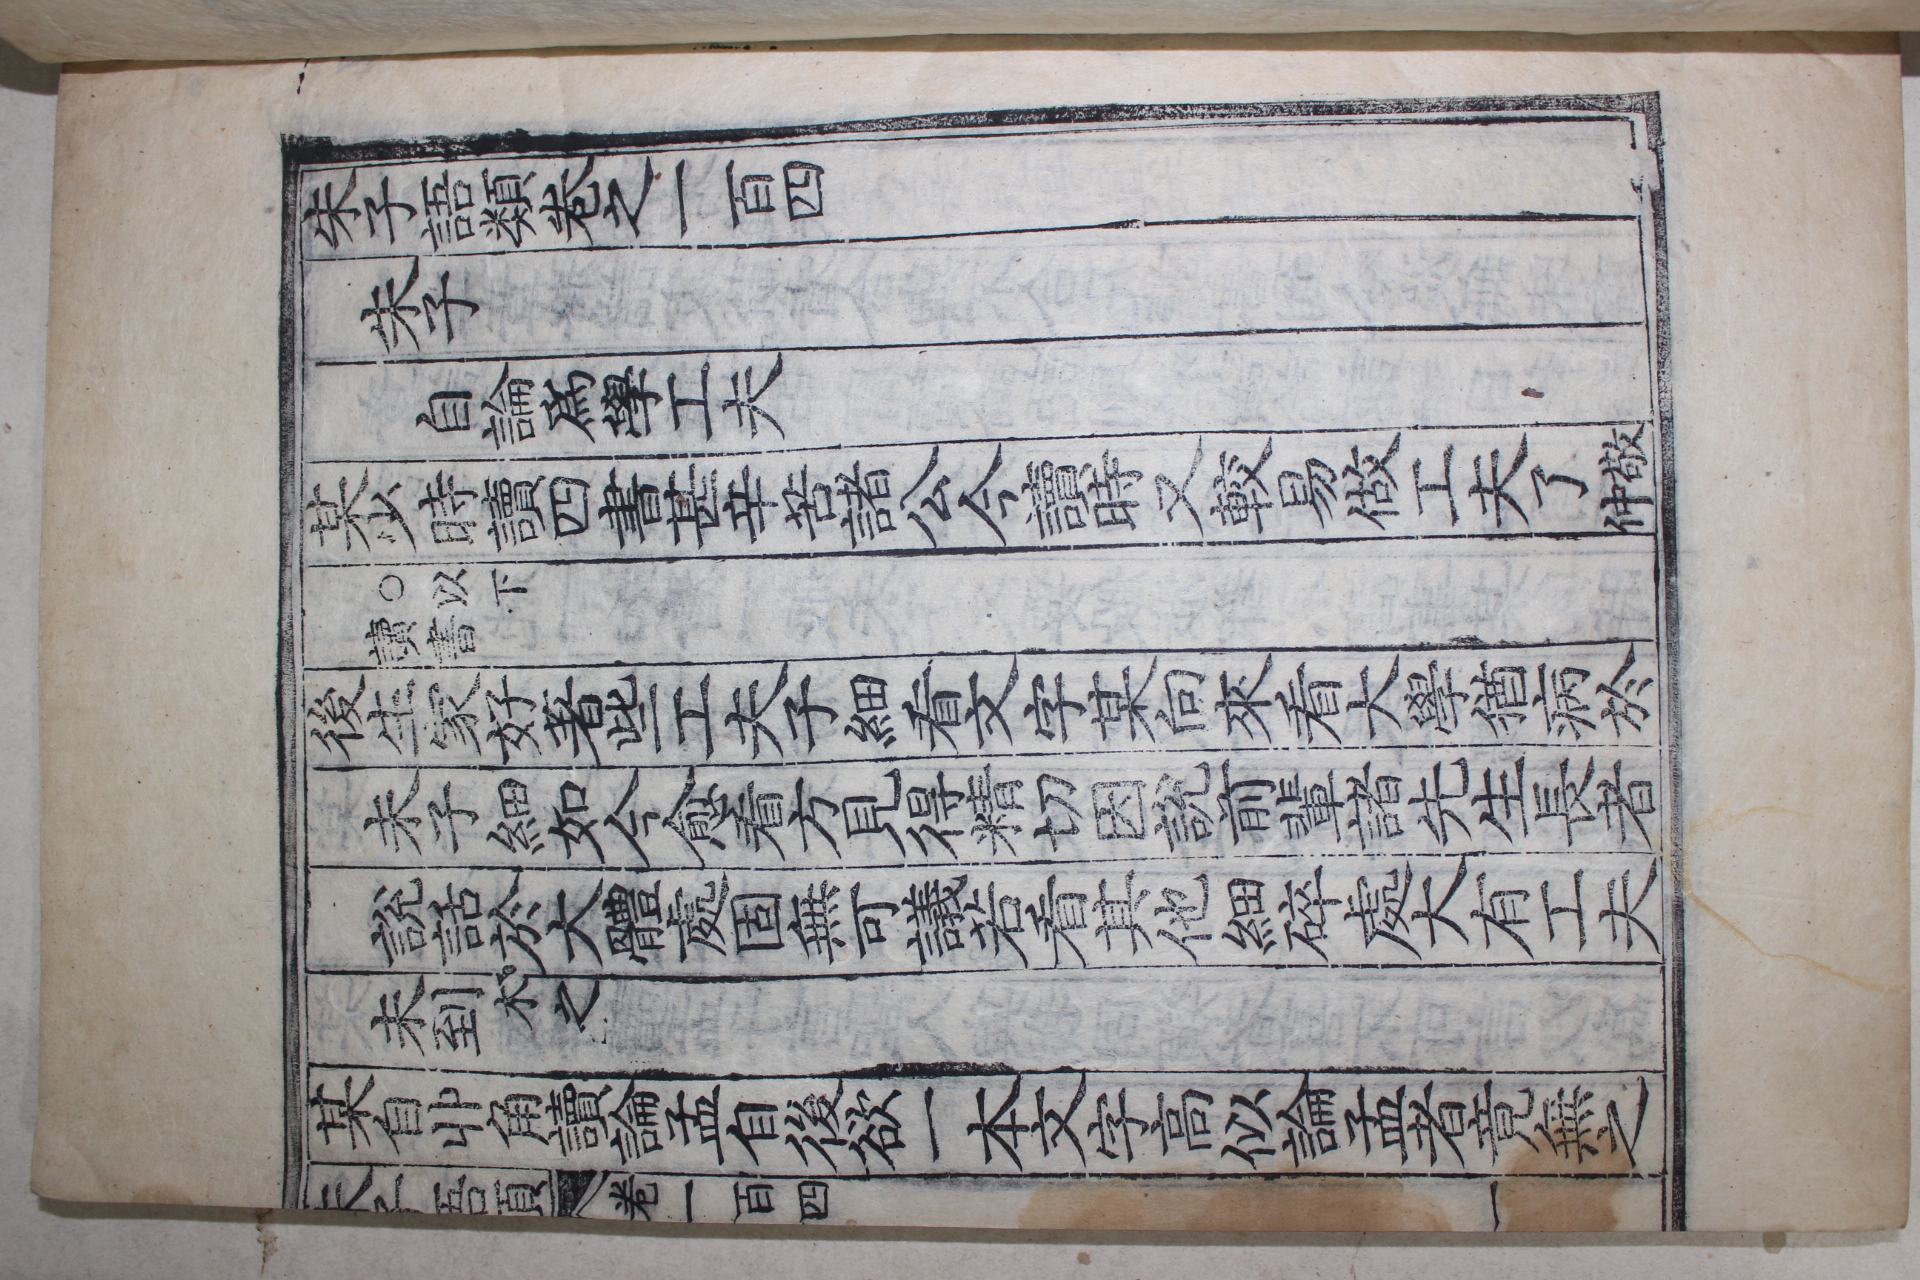 朱子語類卷之一百四
朱子
自論爲學工夫
某少時讀四書甚辛苦諸公今讀時又較易做工夫了敬仲
○以下
讀書
後生家好著些工夫子細看文字某向來看大學猶病於
未子細如今愈看方見得精切因說前輩諸先生長者
說話於大體處固無可議若看其他細碎處大有工夫
未到木之
某自丱角讀論孟自後欲一本文字高似論孟者竟無之
朱子語類 卷一百四 一